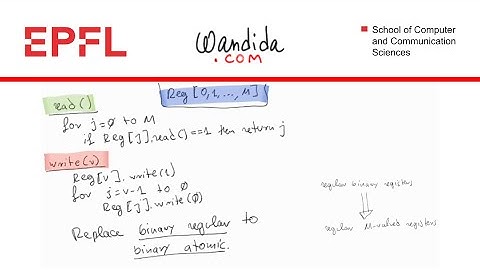 EPFL
Wandida
.COM
School of Computer
and Communication
Sciences
Reg [0,1,..., M]
read()
for j=0 to M
if Reg[j].read()==1 then return j
write(v)
Reg[v].write(1)
for j=v-1 to 0
Reg[j].write(0)
Replace binary regular to
binary atomic.
regular binary registers
regular M-valued registers